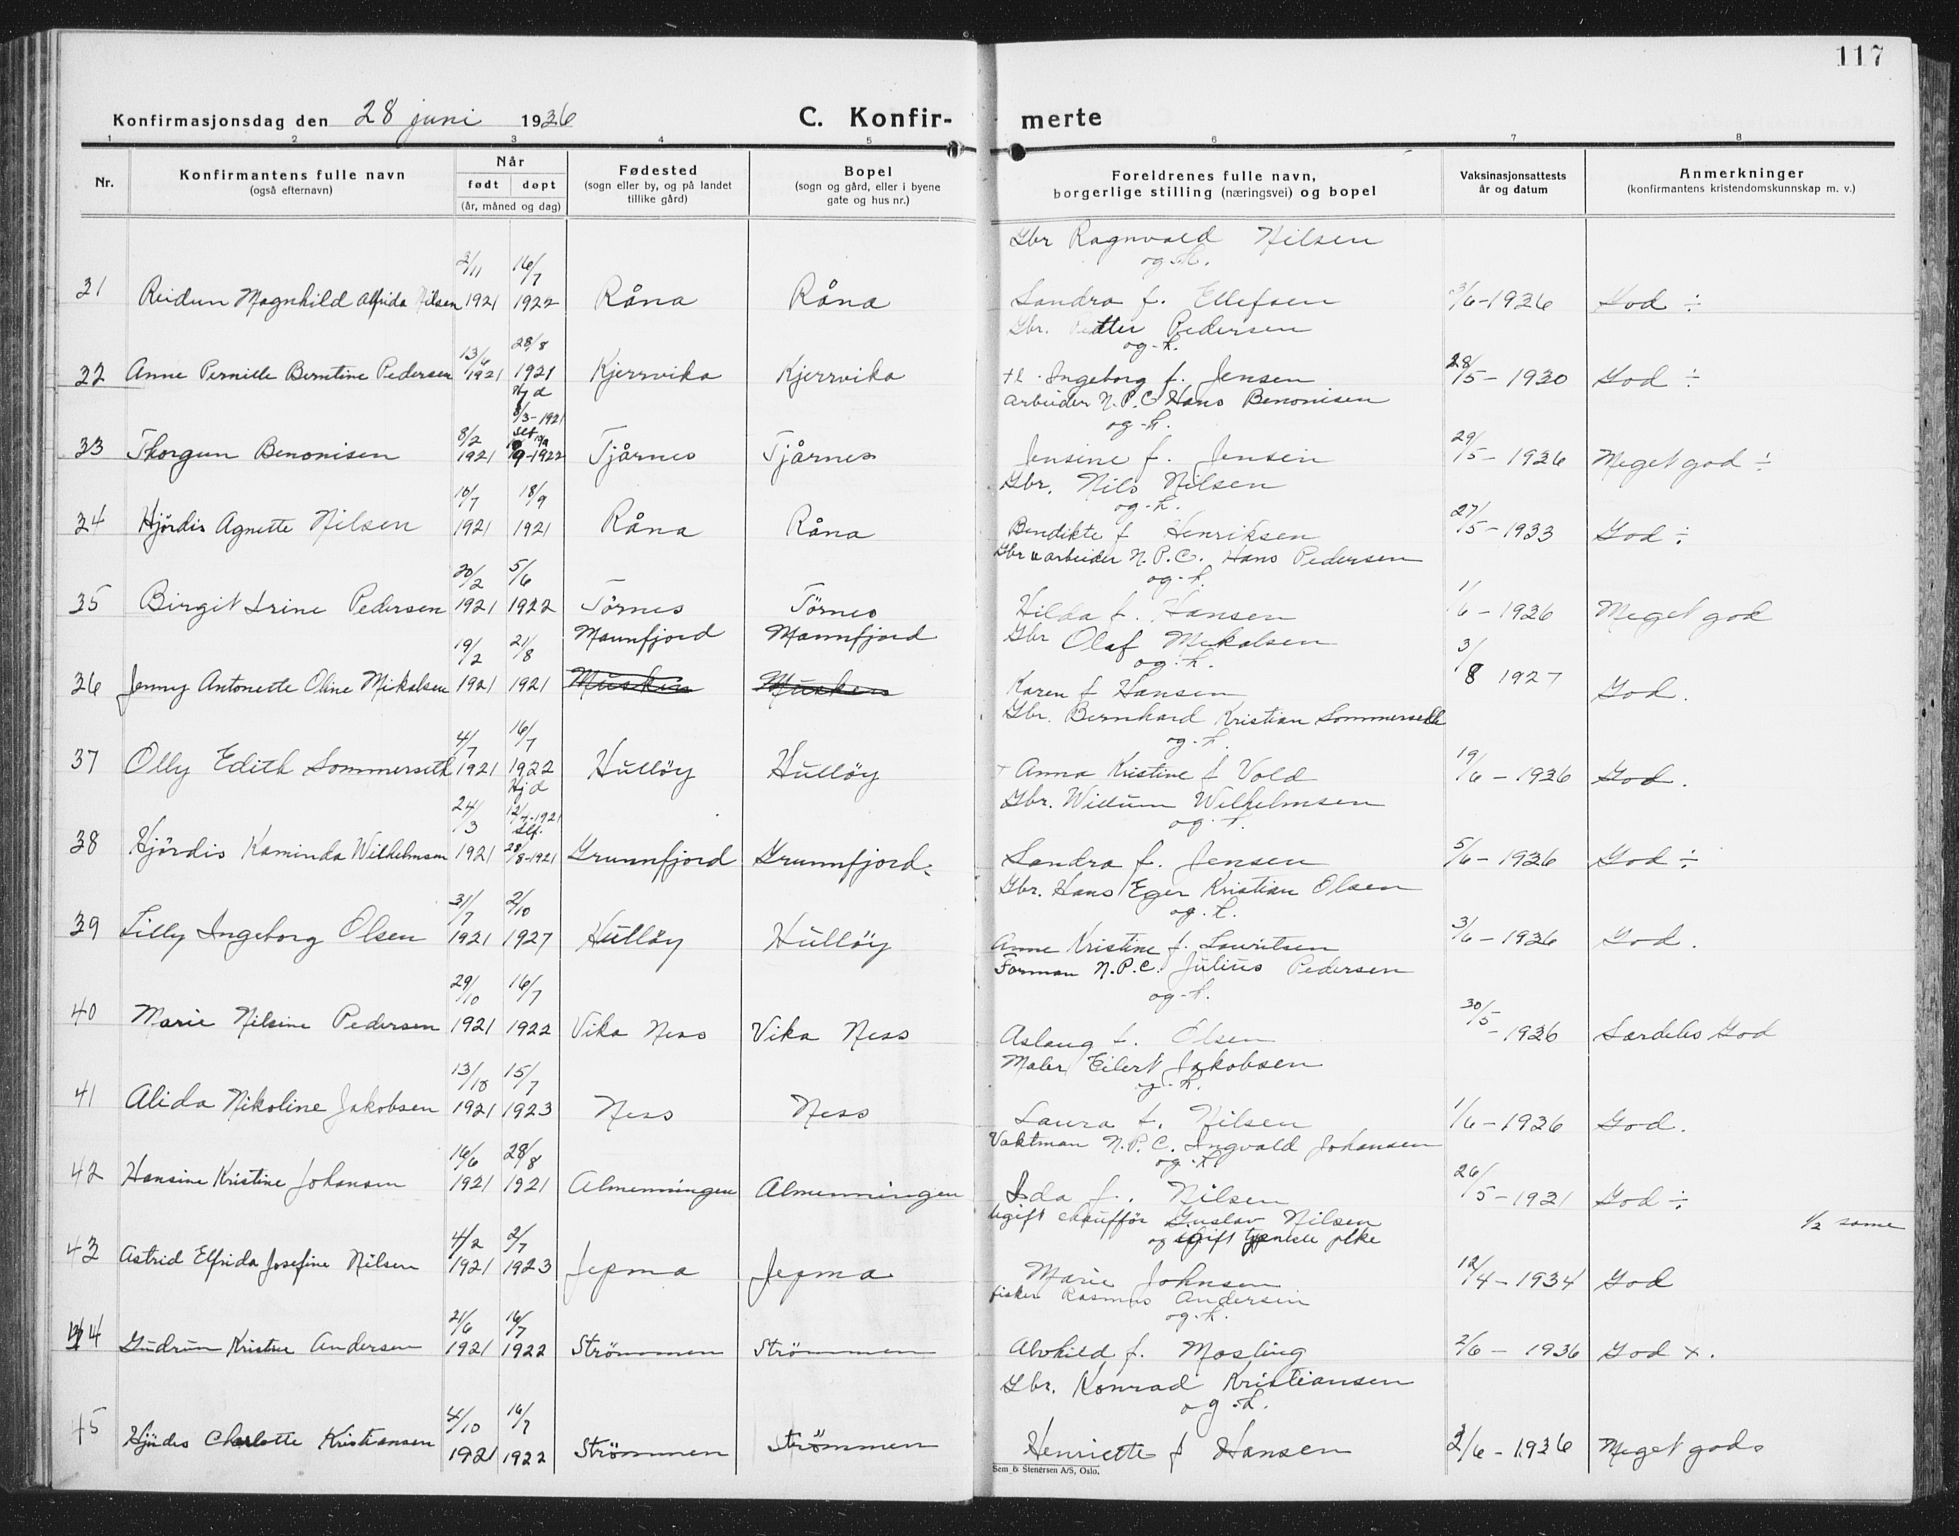 117
Konfirmasjonsdag den 28 juni 1936 C. Konfir- merte
1 2 3 4 5 6 7 8
Nr.
Konfirmantens fulle navn
(også efternavn)
Når
født døpt
(år, måned og dag)
Fødested
(sogn eller by, og på landet
tillike gård)
Bopel
(sogn og gård, eller i byene
gate og hus nr.)
Foreldrenes fulle navn,
borgerlige stilling (næringsvei) og bopel
Vaksinasjonsattests
år og datum
Anmerkninger
(konfirmantens kristendomskunnskap m. v.)
Gbr Ragnvald Nilsen
2/11 16/7 og h.
31 Reidun Magnhild Alfrida Nilsen 1921 1922 Råna Råna Sandra f. Ellefsen 3/6-1936 God ÷
Gbr. Petter Pedersen
13/6 28/8 og h.
32 Anne Pernille Berntine Pedersen 1921 1921 Kjerrvika Kjerrvika + h. Ingeborg f. Jensen 28/5-1930 God ÷
Hjd arbeider N.P.C Hans Benonisen
8/2 8/3-1921 og h.
33 Thorgun Benonisen 1921 9-1922 Tjårnes Tjårnes Jensine f. Jensen 29/5-1936 Meget god ÷
Gbr. Nils Nilsen
16/7 18/9 og h.
34 Hjørdis Agnette Nilsen 1921 1921 Råna Råna Bendikte f Henriksen 27/5-1933 God ÷
Gbr u arbeider N.P.C. Hans Pedersen
20/2 5/6 og h.
35 Birgit Irine Pedersen 1921 1922 Törnes Törnes Hilda f. Hansen 1/6-1936 Meget god
Mannfjord Mannfjord Gbr Olaf Mikalsen
19/2 21/8 og h.
36 Jenny Antonette Oline Mikalsen 1921 1921 Musken Musken Karen f Hansen 3/8 1927 God.
Gbr. Bernhard Kristian Sommerseth
4/7 16/7 og h.
37 Olly Edith Sommerseth 1921 1922 Hulløy Hulløy + Anna Kristine f Vold 19/6-1936 God.
Hjd Gbr. Willum Wilhelmsen
24/3 12/4-1921 slf. og h.
38 Hjørdis Kaminda Wilhelmsen 1921 28/8-1921 Grunnfjord Grunnfjord. Sandra f. Jensen 5/6-1936 God ÷
Gbr. Hans Eger Kristian Olsen
31/7 2/10 og h.
39 Lilly Ingeborg Olsen 1921 1927 Hulløy Hulløy Anne Kristine f. Lauritsen 3/6-1936 God.
Forman N.P.C. Julius Pedersen
29/10 16/7 og h.
40 Marie Nilsine Pedersen 1921 1922 Vika Ness Vika Ness Aslaug f. Olsen 30/5-1936 Særdeles God
Maler Eilert Jakobsen
13/10 15/7 og h.
41 Alida Nikoline Jakobsen 1921 1923 Ness Ness Laura f. Nilsen 1/6-1936 God.
Vaktman N.P.C. Ingvald Johansen
16/6 28/8 og h
42 Hansine Kristine Johansen 1921 1921 Almenningen Almenningen Ida f. Nilsen 26/5-1931 God ÷
Ugift chauffør Gustav Nilsen 1/2 same
4/2 2/7 og ugift pike
43 Astrid Elfrida Josefine Nilsen 1921 1923 Jepma Jepma Marie Johnsen 12/4-1934 God
fisker Rasmus Andersen
21/6 16/7 og h.
44 Gudrun Kristine Andersen 1921 1922 Strömmen Strömmen Alvhild f. Mosling 2/6-1936 God x.
Gbr. Konrad Kristiansen
4/10 16/7 og h.
45 Hjørdis Charlotte Kristiansen 1921 1922 Strömmen Strömmen Henriette f Hansen 2/6-1936 Meget god
Sem & Stenersen A/S, Oslo.